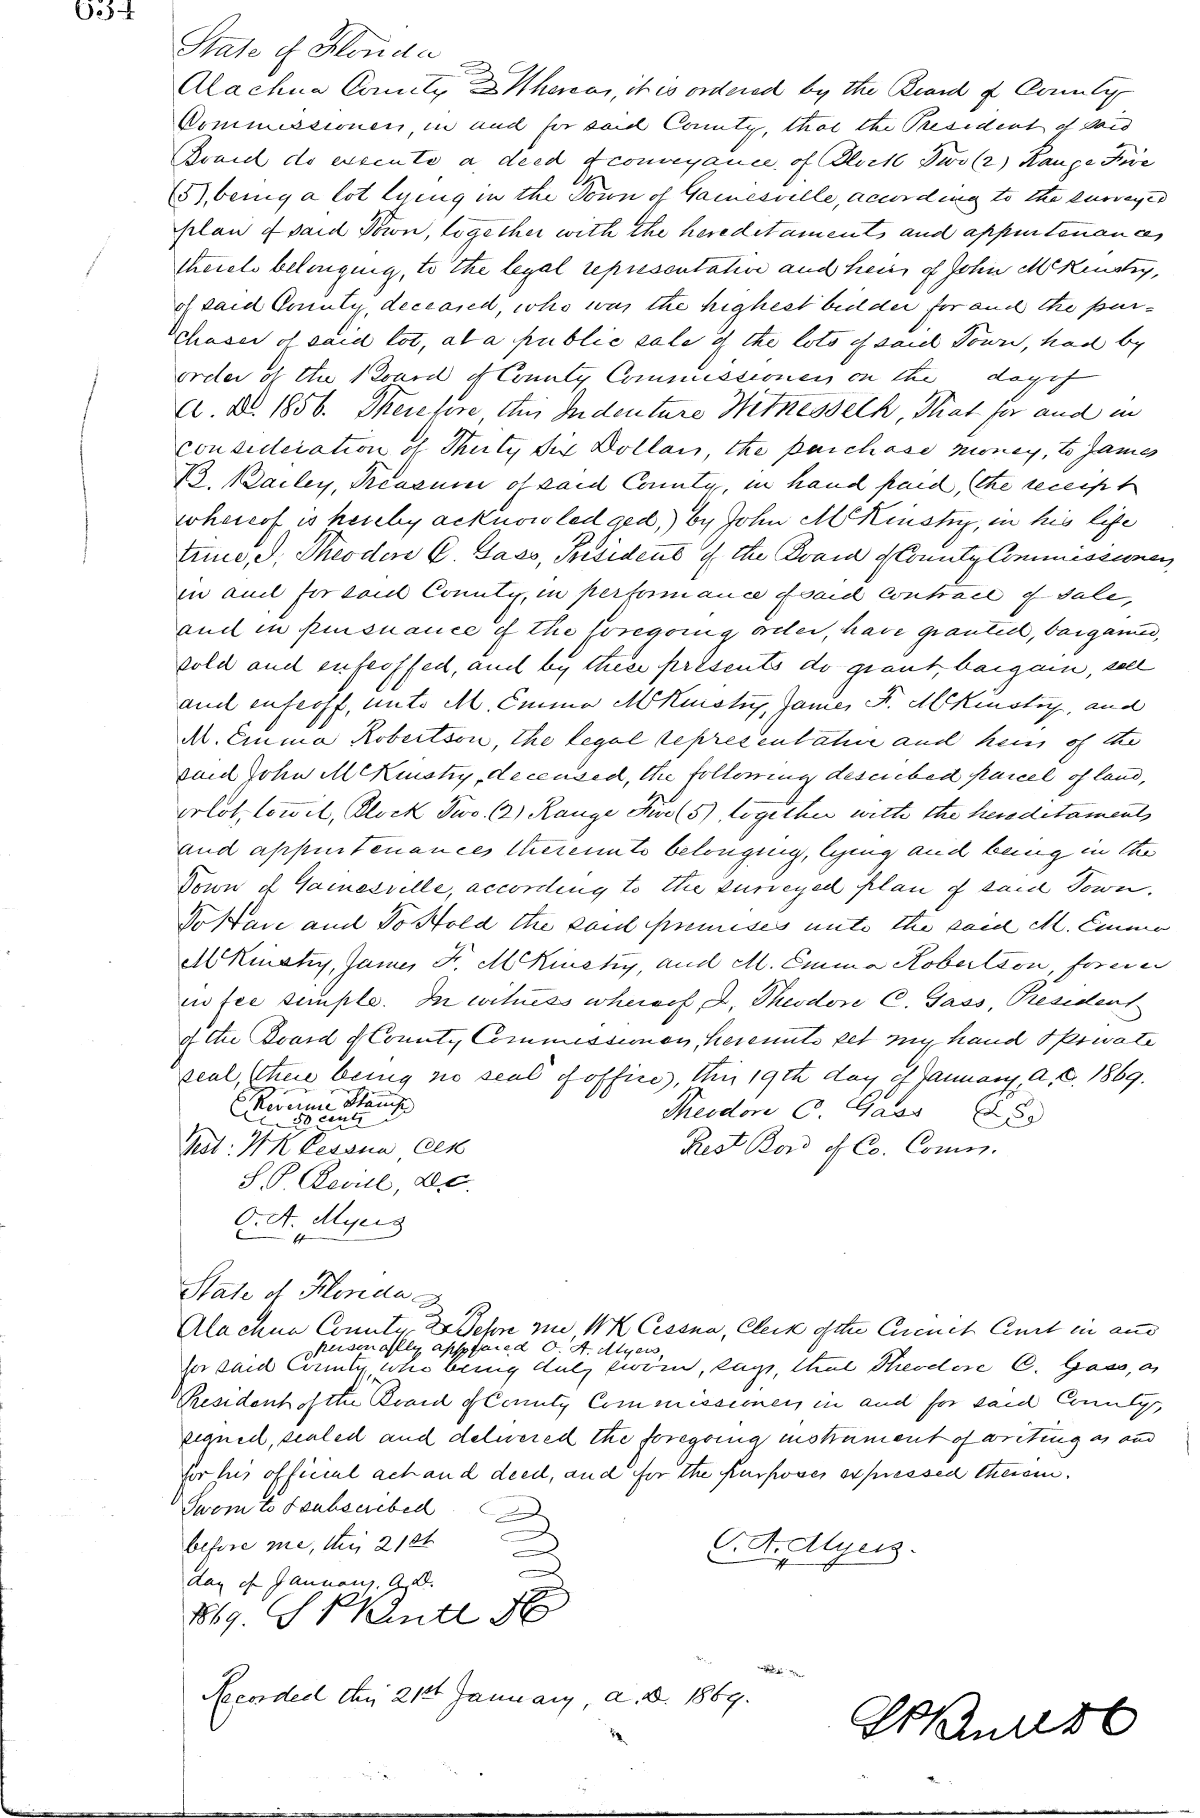 634
State of Florida
Alachua County } Whereas, it is ordered by the Board of County
Commissioners, in and for said County, that the President of said
Board do execute a deed of conveyance of Block Two (2) Range Five
(5), being a lot lying in the Town of Gainesville, according to the surveyed
plan of said Town, together with the hereditaments and appurtenances
thereto belonging, to the legal representative and heirs of John McKinstry,
of said County, deceased, who was the highest bidder for and the pur=
chaser of said lot, at a public sale of the lots of said Town, had by
order of the Board of County Commissioners on the day of
A. D. 1856. Therefore, this Indenture Witnesseth, That for and in
consideration of Thirty Six Dollars, the purchase money, to James
B. Bailey, Treasurer of said County, in hand paid, (the receipt
whereof is hereby acknowledged,) by John McKinstry, in his life
time, I, Theodore C. Gass, President of the Board of County Commissioners
in and for said County, in performance of said contract of sale,
and in pursuance of the foregoing order, have granted, bargained,
sold and enfeoffed, and by these presents do grant, bargain, sell
and enfeoff, unto M. Emma McKinstry, James F. McKinstry, and
M. Emma Robertson, the legal representative and heirs of the
said John McKinstry, deceased, the following described parcel of land,
or lot, towit, Block Two. (2) Range Five (5), together with the hereditaments
and appurtenances thereunto belonging, lying and being in the
Town of Gainesville, according to the surveyed plan of said Town.
To Have and To Hold the said premises unto the said M. Emma
McKinstry, James F. McKinstry, and M. Emma Robertson, forever
in fee simple. In witness whereof I, Theodore C. Gass, President
of the Board of County Commissioners, hereunto set my hand & private
seal, (there being no seal of office), this 19th day of January, A. D. 1869.
(Revenue Stamp 50 cents) Theodore C. Gass (L.S.)
Test: W K Cessna, Clk Prest Bord of Co. Comrs.
S. P. Bevill, D.C.
O. A. Myers
State of Florida
Alachua County } Before me, W K Cessna, Clerk of the Circuit Court in and
personally appeared O. A. Myers,
for said County, who being duly sworn, says, that Theodore C. Gass, as
President of the Board of County Commissioners in and for said County,
signed, sealed and delivered the foregoing instrument of writing as and
for his official act and deed, and for the purposes expressed therein.
Sworn to & subscribed
before me, this 21st O. A. Myers.
day of January, A. D.
1869.
Recorded this 21st January, A. D. 1869.